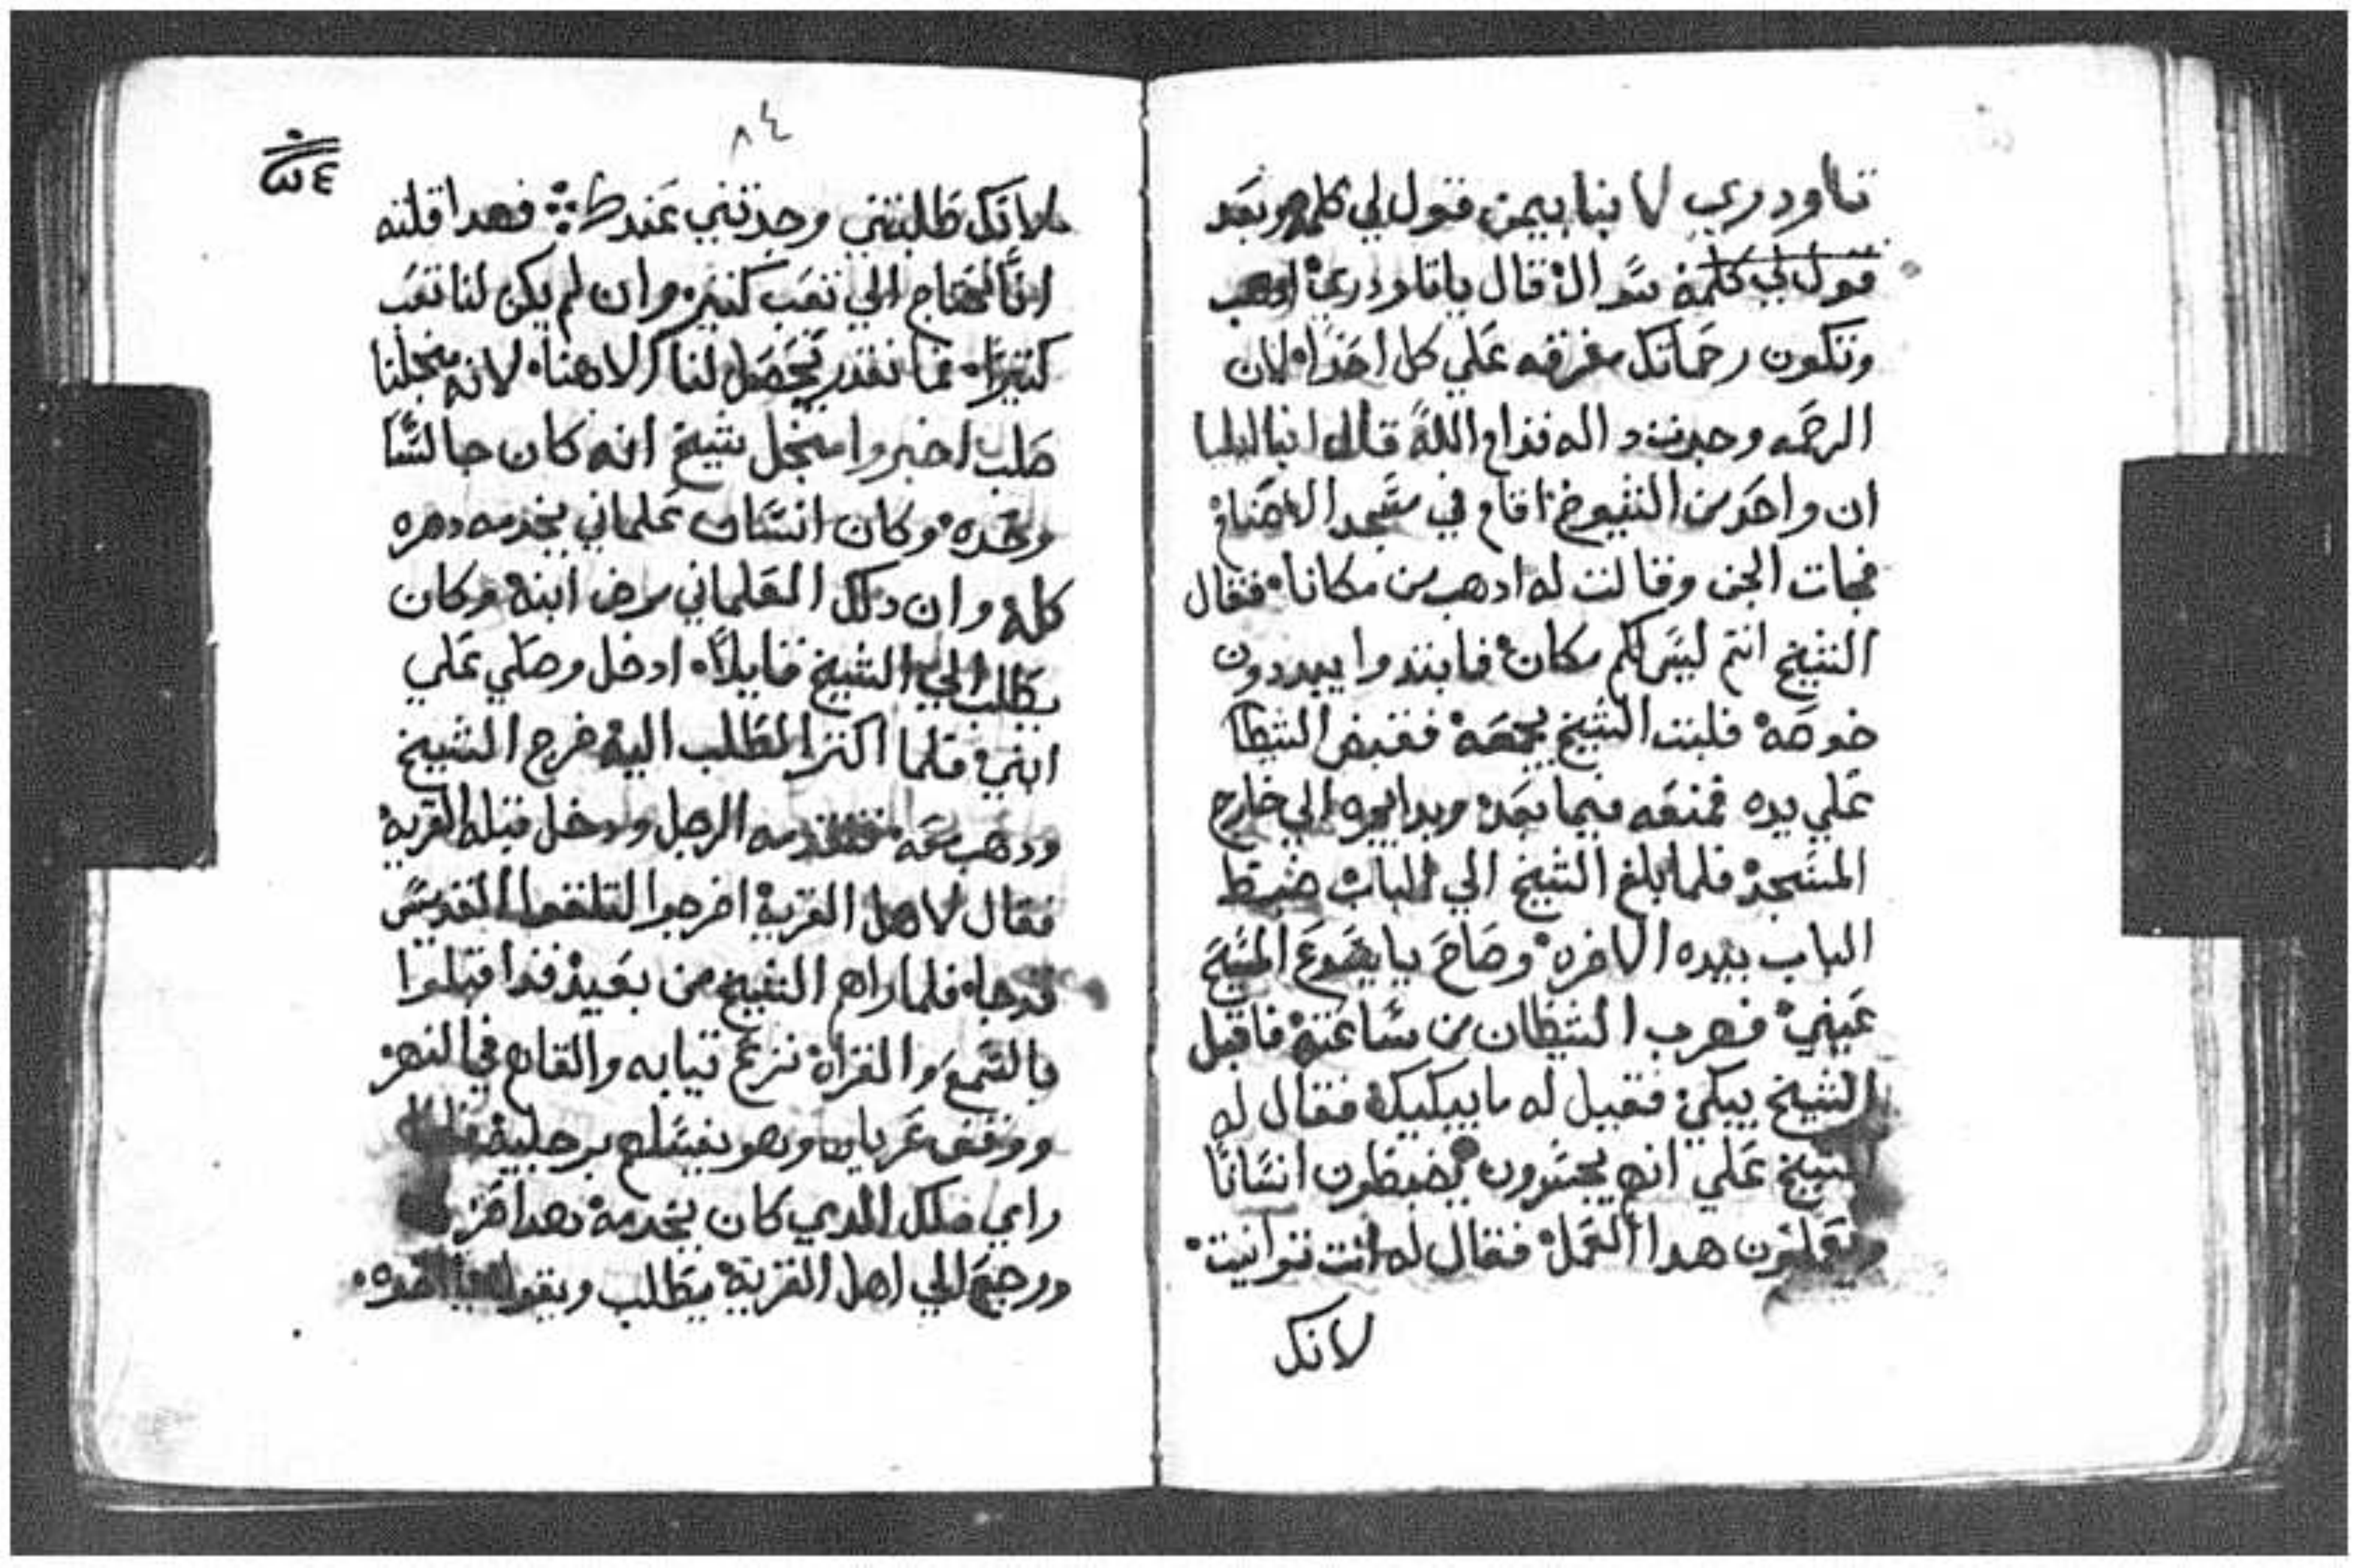 تاودري لانبا بيمن قول لي كلمه وبعد
قول لي كلمة سوال قال يا تاودري
وتكون رحماتك مفرقه علي كل احدا لان
الرحمه وجدت داله قدام الله قال انبا ايليا
ان واحد من الشيوخ اقام في مسجد الاصنام
فجات الجن وقالت له ادهب من مكانا فقال
الشيخ انتم ليس لكم مكان فابتدوا يبددون
خوصه فلبت الشيخ يجمعه فقبض الشيطا
علي يده فمنعه فيما بعد وبدا يجره الي خارج
المسجد فلما بلغ الشيخ الي الباب ضبط
الباب بيده الاخره وصاح يا يسوع المسيح
عيني فهرب الشيطان من ساعته فاقبل
الشيخ يبكي فقيل له ما يبكيك فقال له
الشيخ علي انهم يجسرون يضبطون انسانا
ويعملون هدا العمل فقال له انت توانيت
لانك
٨٤
لانك طلبتني وجدتني عندك فهدا قلته
اننا نحتاج الي تعب كتير وان لم يكن لنا تعب
كتيرا فما نقدر يحصل لنا الاهنا لانه من اجلنا
صلب اخبروا من اجل شيخ انه كان جالسا
وحده وكان انسان علماني يخدمه دهره
كله وان دلك العلماني مرض ابنه وكان
يطلب الي الشيخ قايلا ادخل وصلي علي
ابني فلما اكتر الطلب اليه خرج الشيخ
ودهب معه فتقدمه الرجل ودخل قبله القرية
فقال لاهل القرية اخرجوا لتلتقوا القديس
قد جا فلما راهم الشيخ من بعيد قد اقبلوا
بالشمع والقراة نزع تيابه والقاهم في النهر
ووقف عريان وهو يغسلهم برجليه
راي دلك الدي كان يخدمه هدا
ورجع الي اهل القرية يطلب ويقول